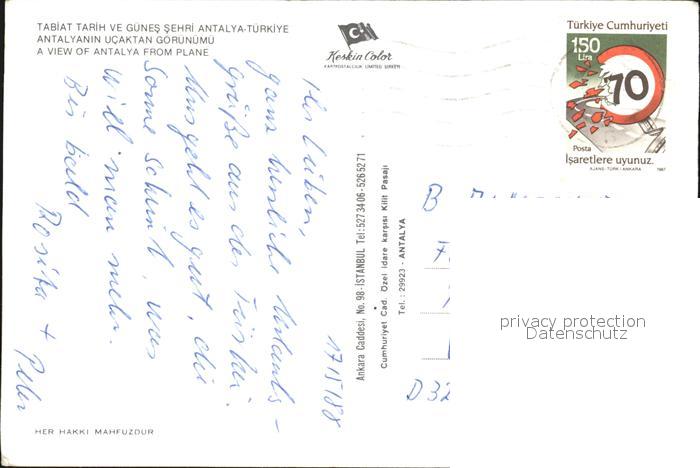 TABİAT TARİH VE GÜNEŞ ŞEHRİ ANTALYA-TÜRKİYE
ANTALYANIN UÇAKTAN GÖRÜNÜMÜ
A VIEW OF ANTALYA FROM PLANE
Keskin Color
KARTPOSTALCILIK LIMITED ŞIRKETI
Türkiye Cumhuriyeti
150
Lira
70
Posta
İşaretlere uyunuz.
AJANS-TÜRK / ANKARA 1987
17/5/88
Ihr Lieben,
ganz herzliche Urlaubs-
grüße aus der Türkei.
Uns geht es gut, die
Sonne scheint, was
will man mehr.
Bis bald
Rosita + Peter
Ankara Caddesi, No. 98-İSTANBUL Tel: 527 34 06 - 526 52 71
Cumhuriyet Cad. Özel idare karşısı Kilit Pasajı
Tel.: 29923 - ANTALYA
D 32
privacy protection
Datenschutz
HER HAKKI MAHFUZDUR